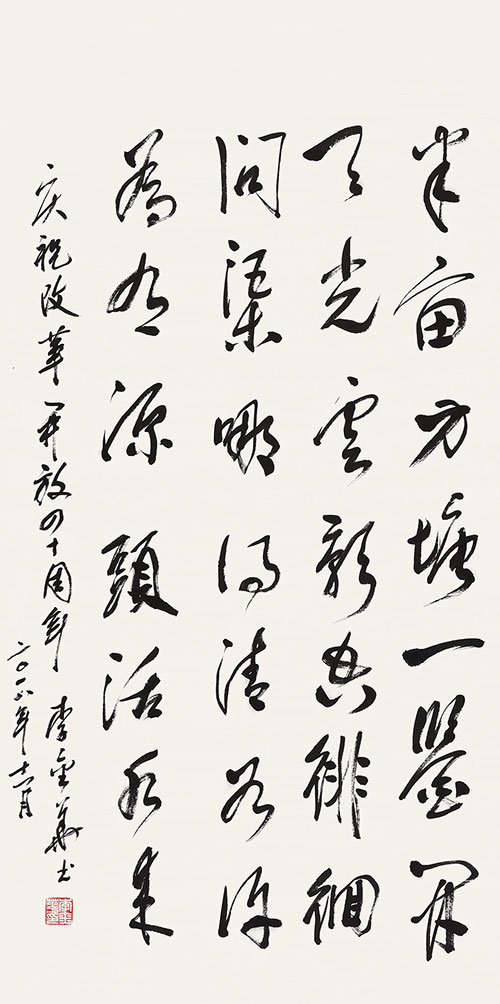 半亩方塘一鑒開
天光雲影共徘徊
問渠哪得清如許
為有源頭活水来
庆祝改革开放四十周年 李金華书
二〇一八年十一月